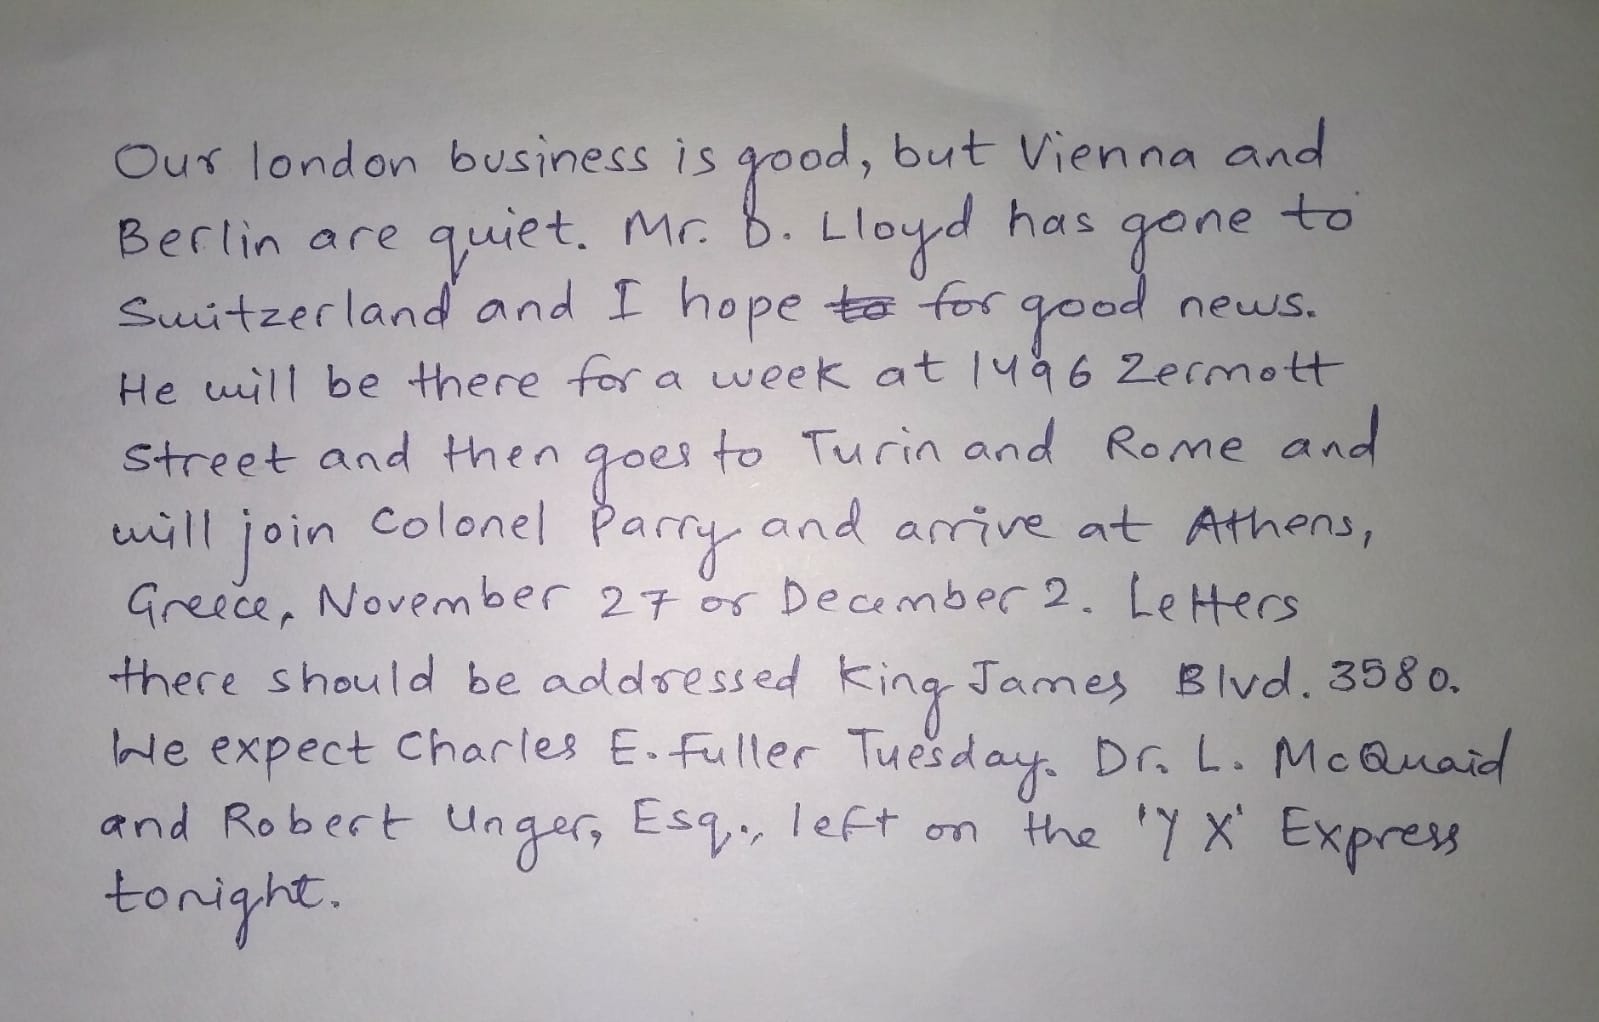 Our london business is good, but Vienna and
Berlin are quiet. Mr. D. Lloyd has gone to
Switzerland and I hope to for good news.
He will be there for a week at 1496 Zermott
street and then goes to Turin and Rome and
will join Colonel Parry and arrive at Athens,
Greece, November 27 or December 2. Letters
there should be addressed King James Blvd. 3580.
We expect Charles E. Fuller Tuesday. Dr. L. McQuaid
and Robert Unger, Esq., left on the 'Y X' Express
tonight.